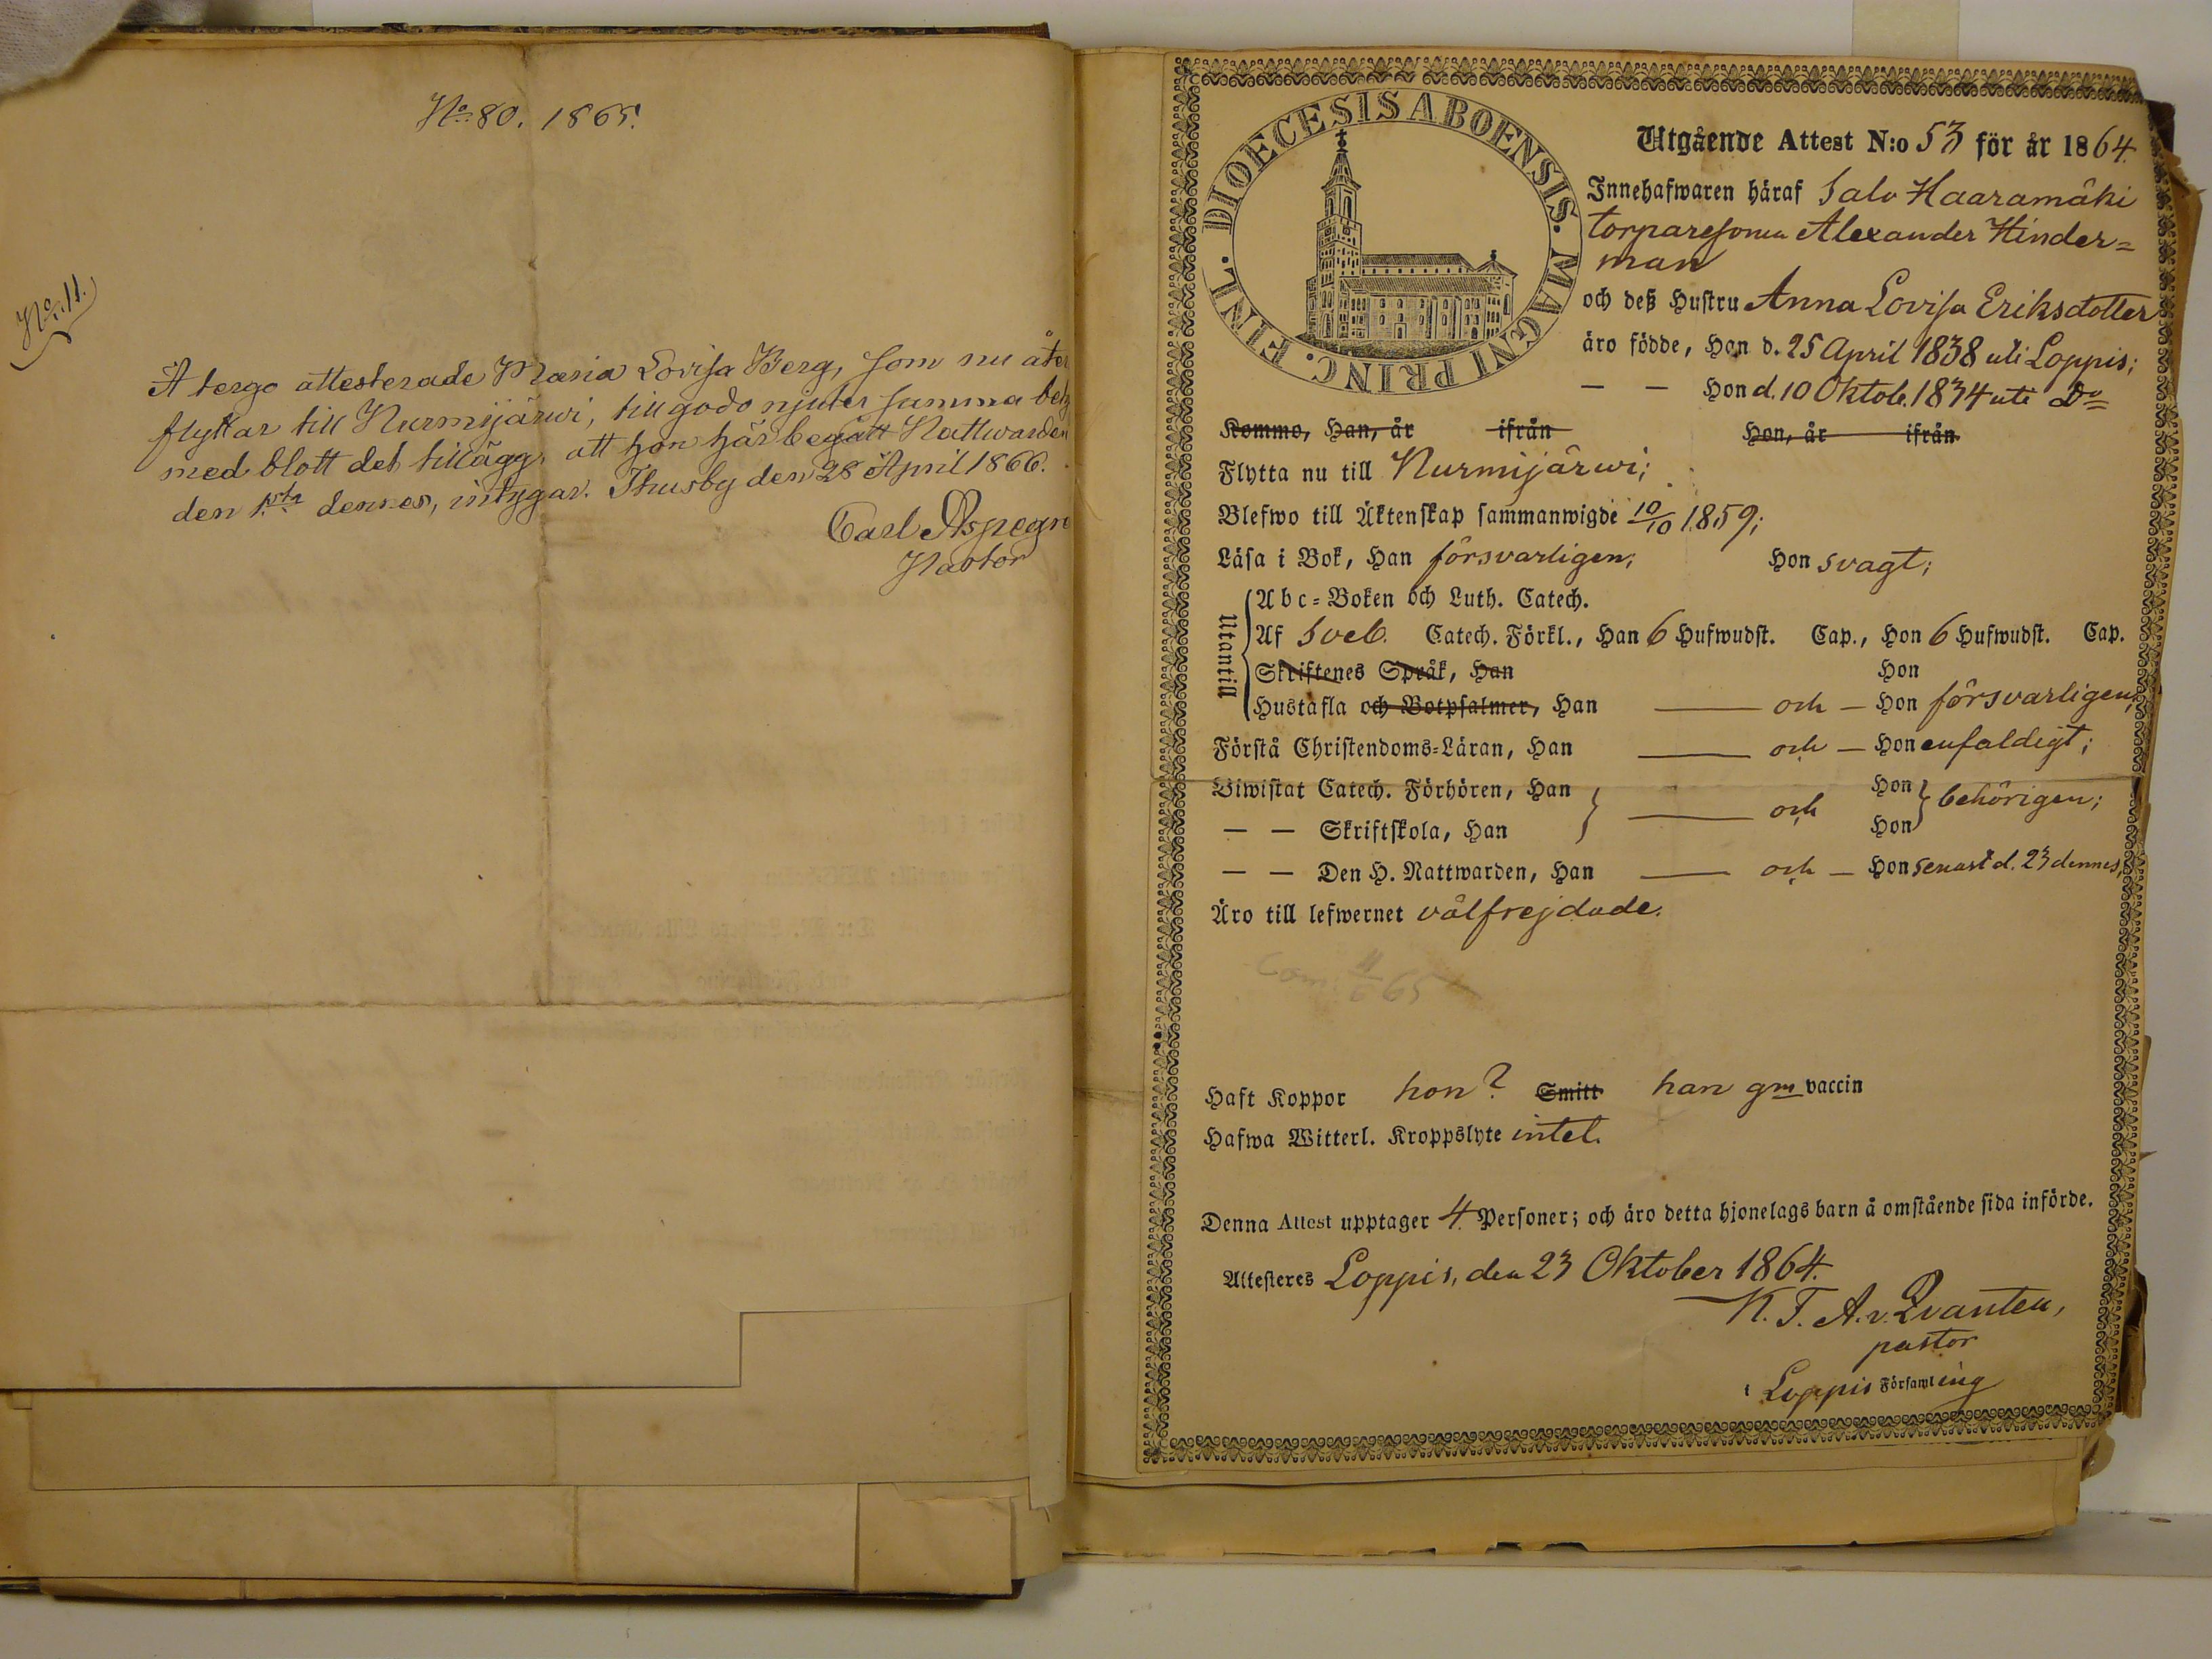 No 80. 1865.
No 11.
A tergo attesterade Maria Lovisa Berg, som nu åter
flyttar till Nurmijärwi, till godo njuter samma bety
med blott det tillägg, att hon här begått Nattwarden
den 1sta dennes, intygar. Thusby den 28 April 1866.
Carl Aspegre
Pastor
DIOECESIS ABOENSIS. MAGNI PRINC. FINL.
Utgående Attest N:o 53 för år 1864.
Innehafwaren häraf Salo Haaramäki
torparesonen Alexander Hinder=
man
och deß Hustru Anna Lovisa Eriksdotter
äro födde, Han d. 25 April 1838 uti Loppis;
— — Hon d. 10 Oktob. 1834 uti Do
Kommo, Han, år ifrån Hon, år ifrån
Flytta nu till Nurmijärwi;
Blefwo till Äktenskap sammanwigde 10/10 1859;
Läsa i Bok, Han försvarligen; Hon svagt;
Utantill
Abc=Boken och Luth. Catech.
Af Sveb. Catech. Förkl., Han 6 Hufwudst. Cap., Hon 6 Hufwudst. Cap.
Skriftenes Språk, Han Hon
Hustafla och Botpsalmer, Han — och — Hon försvarligen;
Förstå Christendoms=Läran, Han — och — Hon enfaldigt;
Biwistat Catech. Förhören, Han Hon
— och behörigen;
— — Skriftskola, Han Hon
— — Den H. Nattwarden, Han — och — Hon senast d. 23 dennes,
Äro till lefwernet välfrejdade.
65
Haft Koppor hon? Smitt han gm vaccin
Hafwa Witterl. Kroppslyte intet.
Denna Attest upptager 4. Personer; och äro detta hjonelags barn å omstående sida införde.
Attesteres Loppis, den 23 Oktober 1864.
K. F. A. v. Qvanten,
pastor
i Loppis Församling